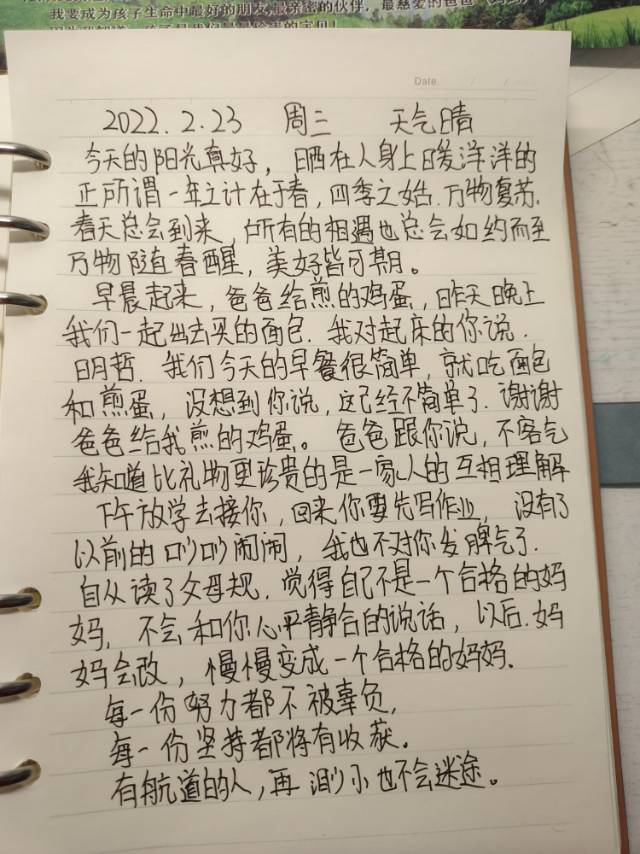 我要成为孩子生命中最好的朋友,最亲密的伙伴,最慈爱的爸爸
Date.
2022.2.23 周三 天气晴
今天的阳光真好,晒在人身上暖洋洋的
正所谓一年之计在于春,四季之始.万物复苏.
春天总会到来,所有的相遇也总会如约而至
万物随春醒,美好皆可期。
早晨起来,爸爸给煎的鸡蛋,昨天晚上
我们一起出去买的面包.我对起床的你说.
明哲.我们今天的早餐很简单,就吃面包
和煎蛋,没想到你说,这已经不简单了.谢谢
爸爸给我煎的鸡蛋。爸爸跟你说,不客气
我知道比礼物更珍贵的是一家人的互相理解
下午放学去接你,回来你要先写作业,没有了
以前的吵吵闹闹,我也不对你发脾气了.
自从读了父母规.觉得自己不是一个合格的妈
妈,不会和你心平静合的说话,以后.妈
妈会改,慢慢变成一个合格的妈妈.
每一份努力都不被辜负,
每一份坚持都将有收获.
有航道的人,再渺小也不会迷途。